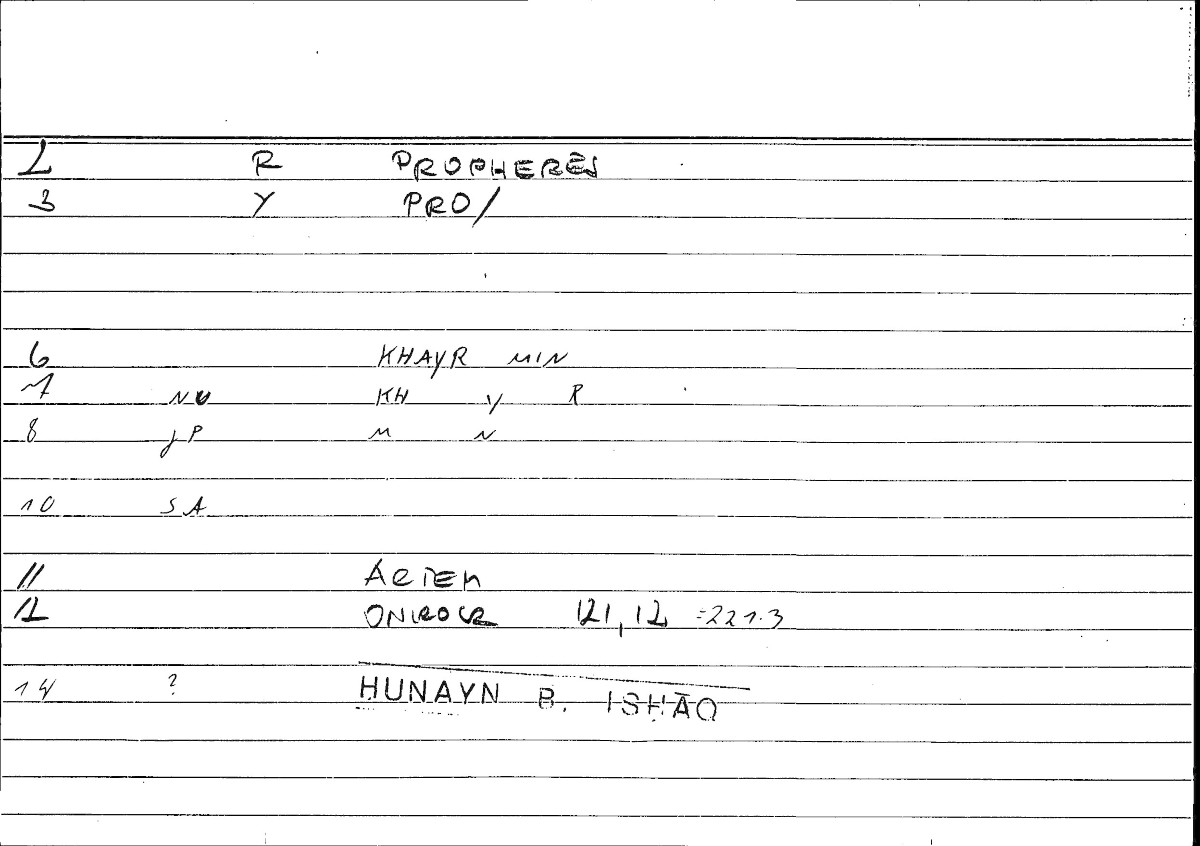 2 R PROPHERĒS
3 Y PRO/
6 KHAYR MIN
7 NU KH Y R
8 JP M N
10 SA
11 ARTEM
12 ONIROCR 121,12 =221.3
14 ? HUNAYN B. ISHĀQ